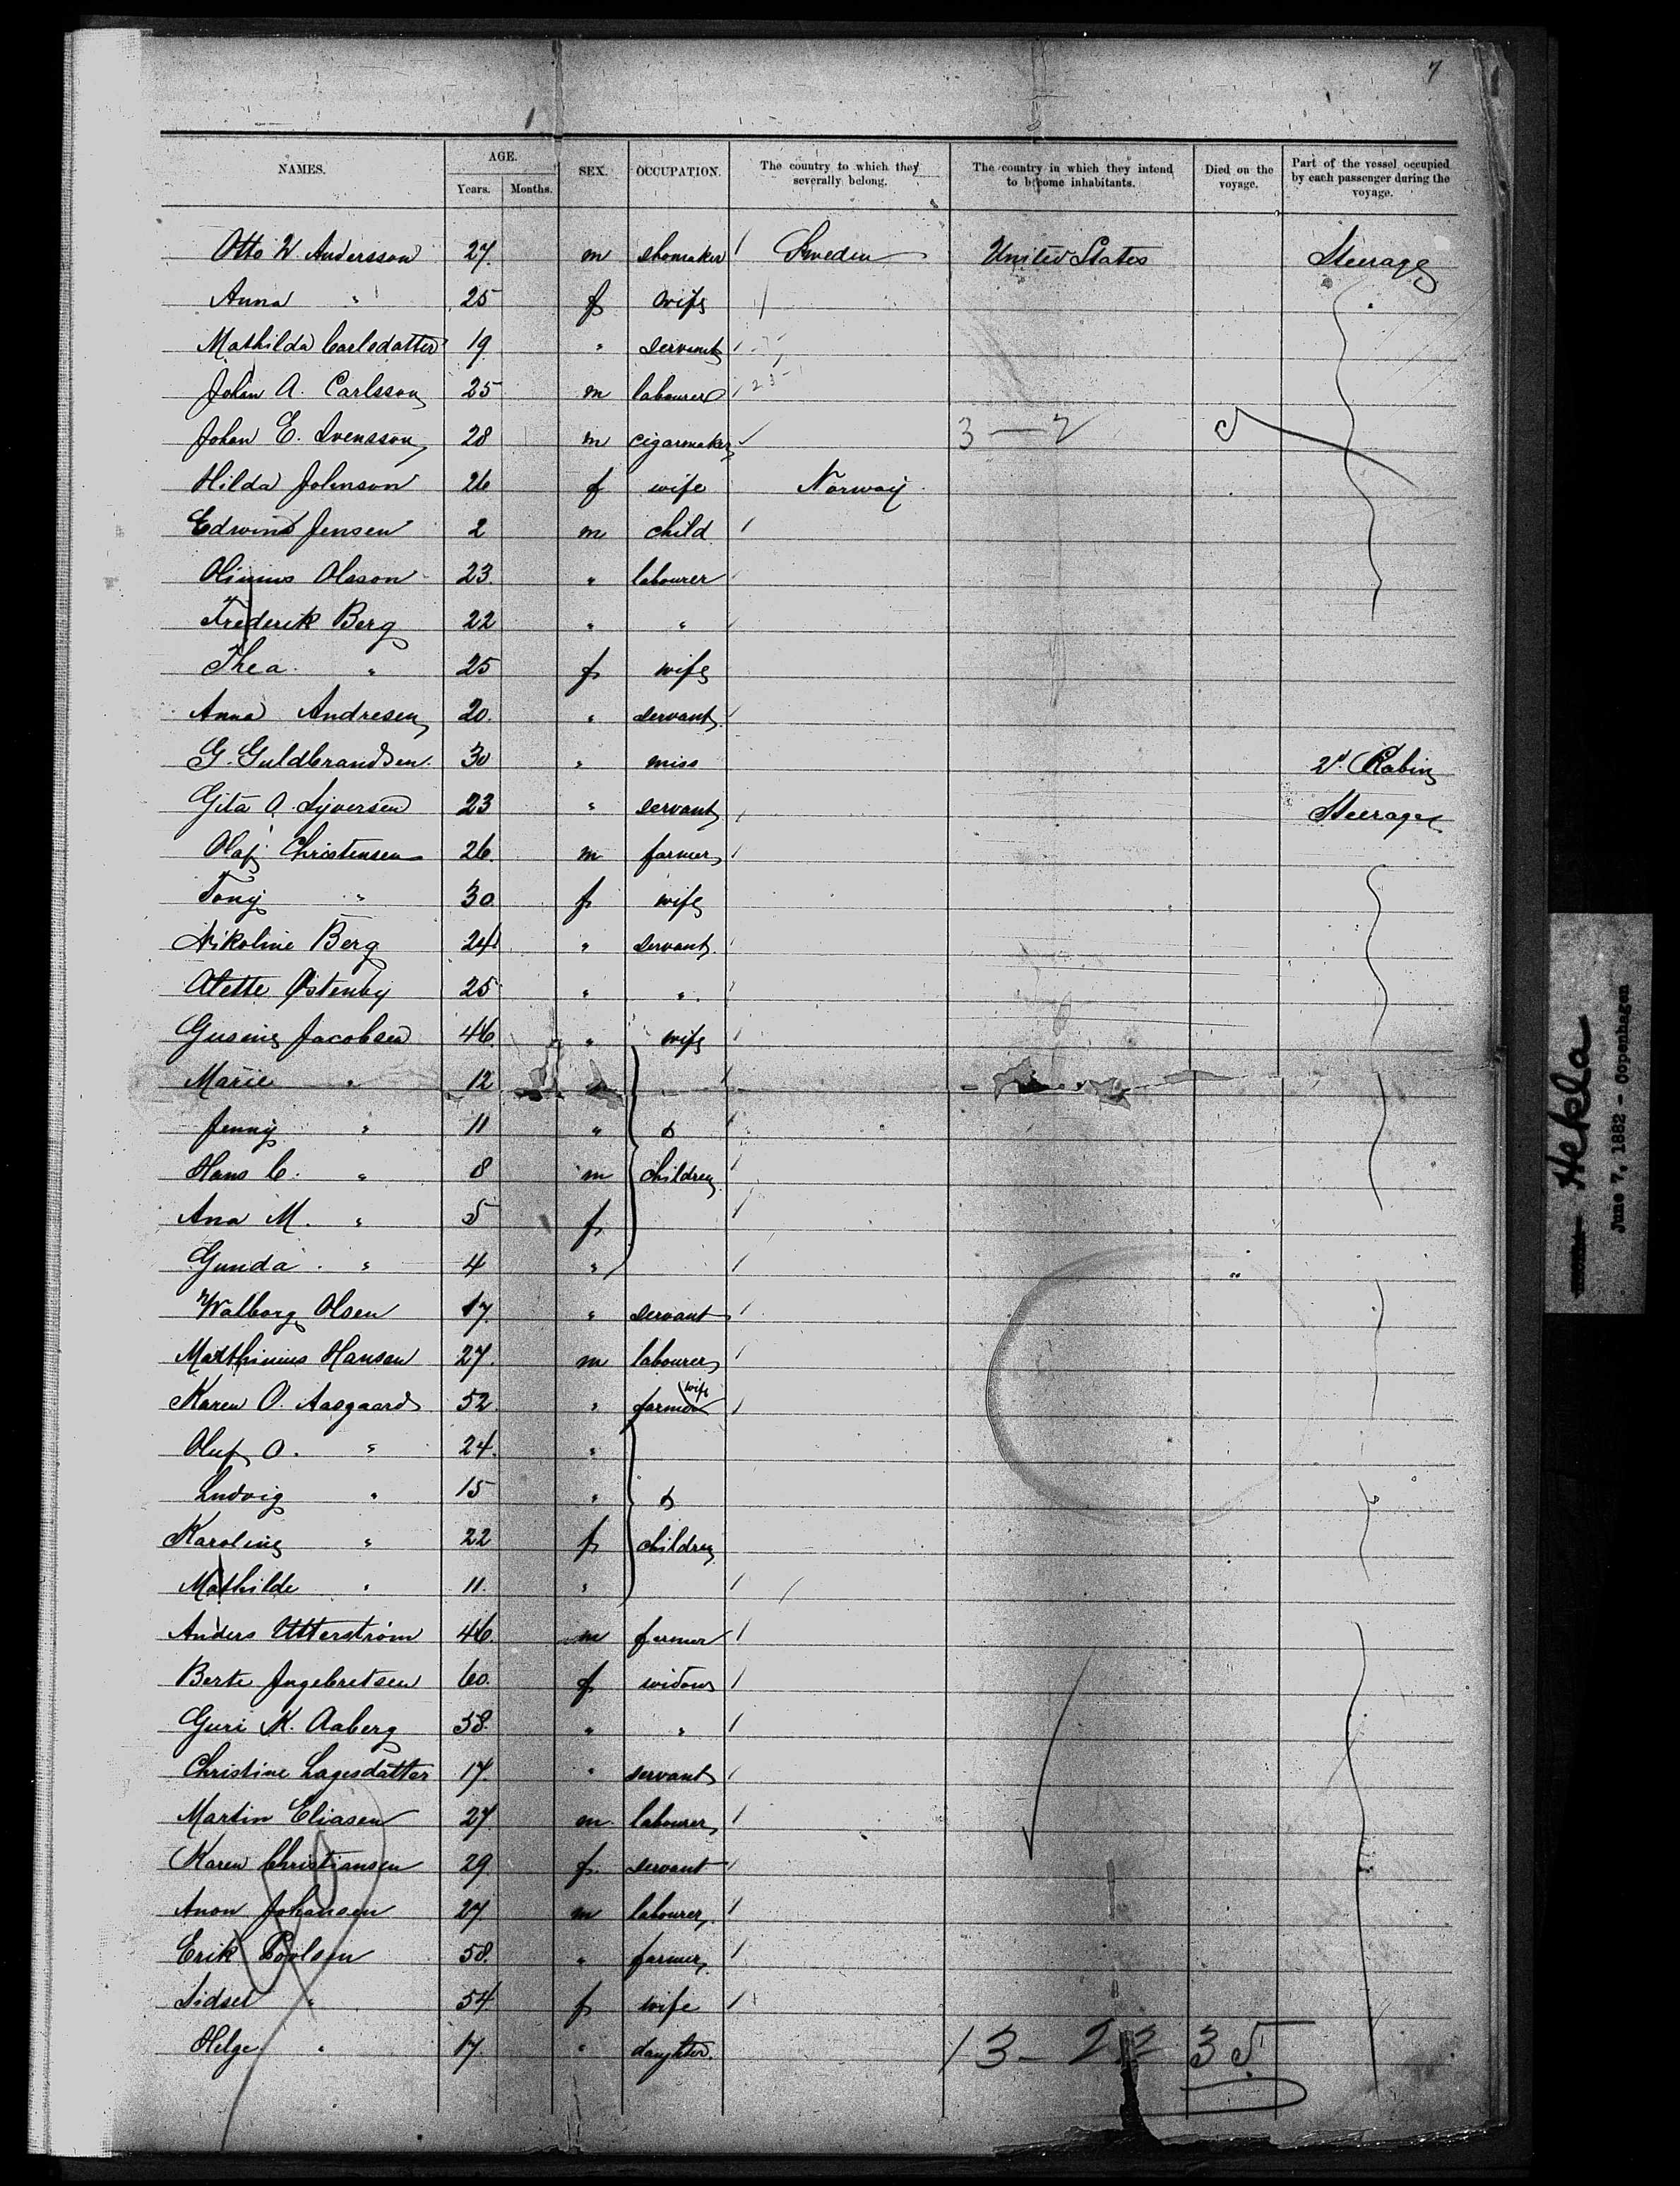 7
NAMES. AGE. Years. Months. SEX. OCCUPATION. The country to which they severally belong. The country in which they intend to become inhabitants. Died on the voyage. Part of the vessel occupied by each passenger during the voyage.
Otto W. Andersson 27. m shomaker Sweden United States Steerage
Anna " 25 f wife "
Mathilda Carlsdatter 19 " servant
Johan A. Carlsson 25 m labourer
Johan E. Svensson 28 m cigarmaker 3 — 2 5
Hilda Johnson 26 f wife Norway.
Edwind Jensen 2 m child
Olinius Olsson 23. " labourer
Frederik Berg 22 " "
Thea " 25 f wife
Anna Andresen 20. " servant
G. Guldbrandsen 30 " miss 2d. Cabin
Gita O. Syversen 23 " servant Steerage
Olaf Christensen 26. m farmer
Tony " 30 f wife
Nikoline Berg 24 " servant
Alette Østenby 25 " "
Gusine Jacobsen 46. " wife
Marie " 12
Jenny " 11 " 5
Hans C. " 8 m children
Ana M. " 5 f
Gunda " 4 "
Walborg Olsen 17. " servant
Matthinius Hansen 27. m labourer
Karen O. Aasgaard 52. " farmer wife
Oluf O. " 24. "
Ludvig " 15 "
Karoline " 22 f children
Mathilde " 11. "
Anders Utterstrøm 46. m farmer
Berte Ingebretsen 60. f widow
Guri K. Aaberg 58. " "
Christine Lagesdatter 17. " servant
Martin Eliasen 27. m. labourer
Karen Christiansen 29 f. servant
Anon Johansen 27 m labourer
Erik Poolsen 58. " farmer
Sidsel " 54 f wife
Helge " 17. " daughter.
13 - 22 35
Hekla
June 7, 1882 - Copenhagen